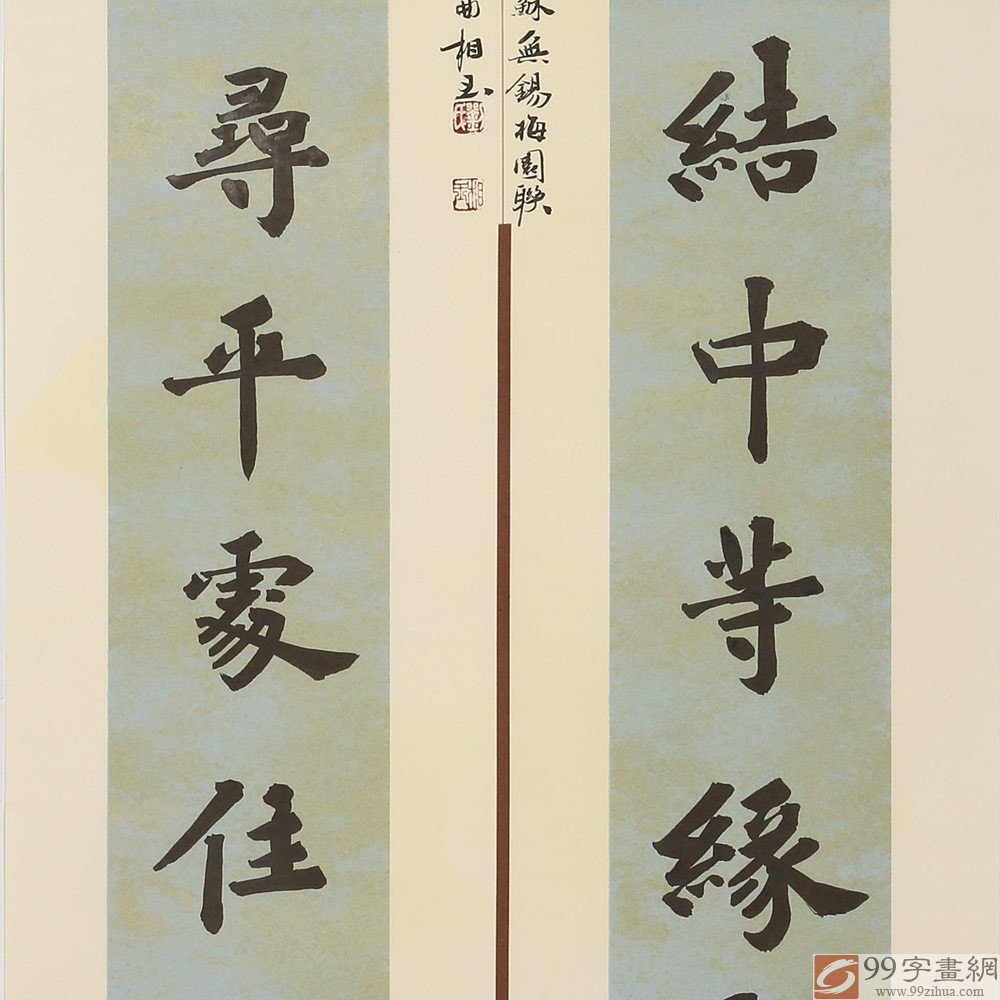 結中等緣
無錫梅園聯
尋平處住
相玉
99字畫網
www.99zihua.com